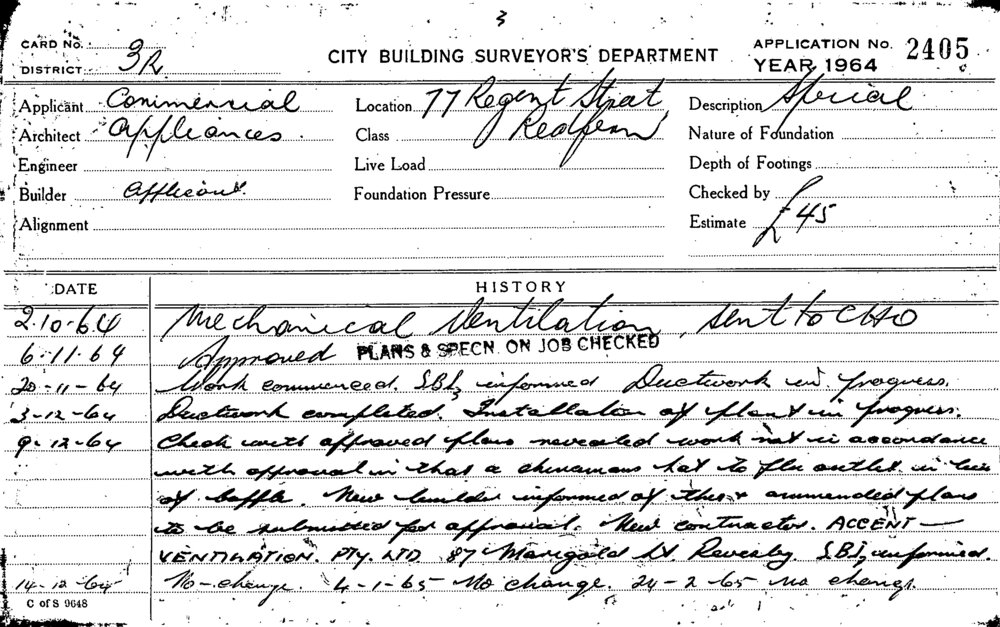 3
CARD No. 3R
DISTRICT
CITY BUILDING SURVEYOR'S DEPARTMENT
APPLICATION No. 2405
YEAR 1964
Applicant Commercial
Architect Appliances
Engineer
Builder Applicant
Alignment
Location 77 Regent Street
Class Redfern
Live Load
Foundation Pressure
Description Special
Nature of Foundation
Depth of Footings
Checked by
Estimate £45
DATE HISTORY
2.10.64 Mechanical Ventilation, sent to CHO
6.11.64 Approved PLANS & SPECN. ON JOB CHECKED
20-11-64 Work commenced. S.B.I. informed Ductwork in progress.
3-12-64 Ductwork completed. Installation of plant in progress.
9-12-64 Check with approved plans revealed work not in accordance
with approval in that a chinamans hat to flu outlet in lieu
of baffle. New builder informed of this & ammended plans
to be submitted for approval. New contractor. ACCENT
VENTILATION. PTY. LTD 87 Marigold St. Revesby. S.B.I. informed.
14-12-64 No-change. 4-1-65 No change. 24-2-65 no change.
C of S 9648